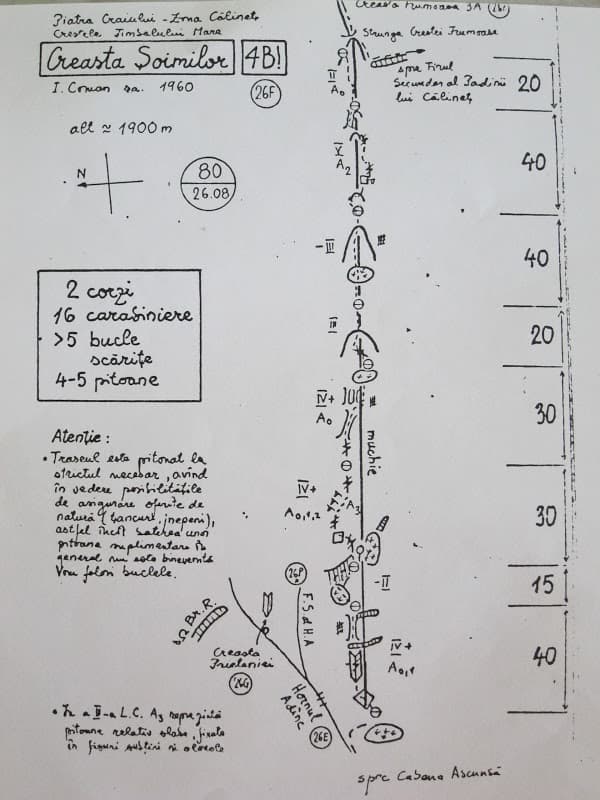 Piatra Craiului - Zona Călineț
Crestele Timbalului Mare
Creasta Șoimilor 4B!
I. Coman sa. 1960
26F
alt ≈ 1900 m
N
80
26.08
2 corzi
16 carabiniere
>5 bucle
scărițe
4-5 pitoane
Atenție:
• Traseul este pitonat la
strictul necesar, avînd
în vedere posibilitățile
de asigurare oferite de
natură (lancuri, jnepeni),
astfel încît baterea unor
pitoane suplimentare în
general nu este binevenită
Vom folosi buclele.
• În a II-a L.C. A3 reprezintă
pitoane relativ slabe, fixate
în fisuri subțiri și
Creasta Frumoasă 3A
Strunga Crestei Frumoase
spre Firul
Secundar al Padinii
lui Călineț
II
A0
V
A2
-III
III
III
IV+
A0
III
muchie
IV+
A0,1,2
A3
-II
III
IV+
A0,1
20
40
40
20
30
30
15
40
26P
F.S. d H.A
Br. R.
Creasta
26G
Hornul
Adînc
26E
spre Cabana Ascunsă